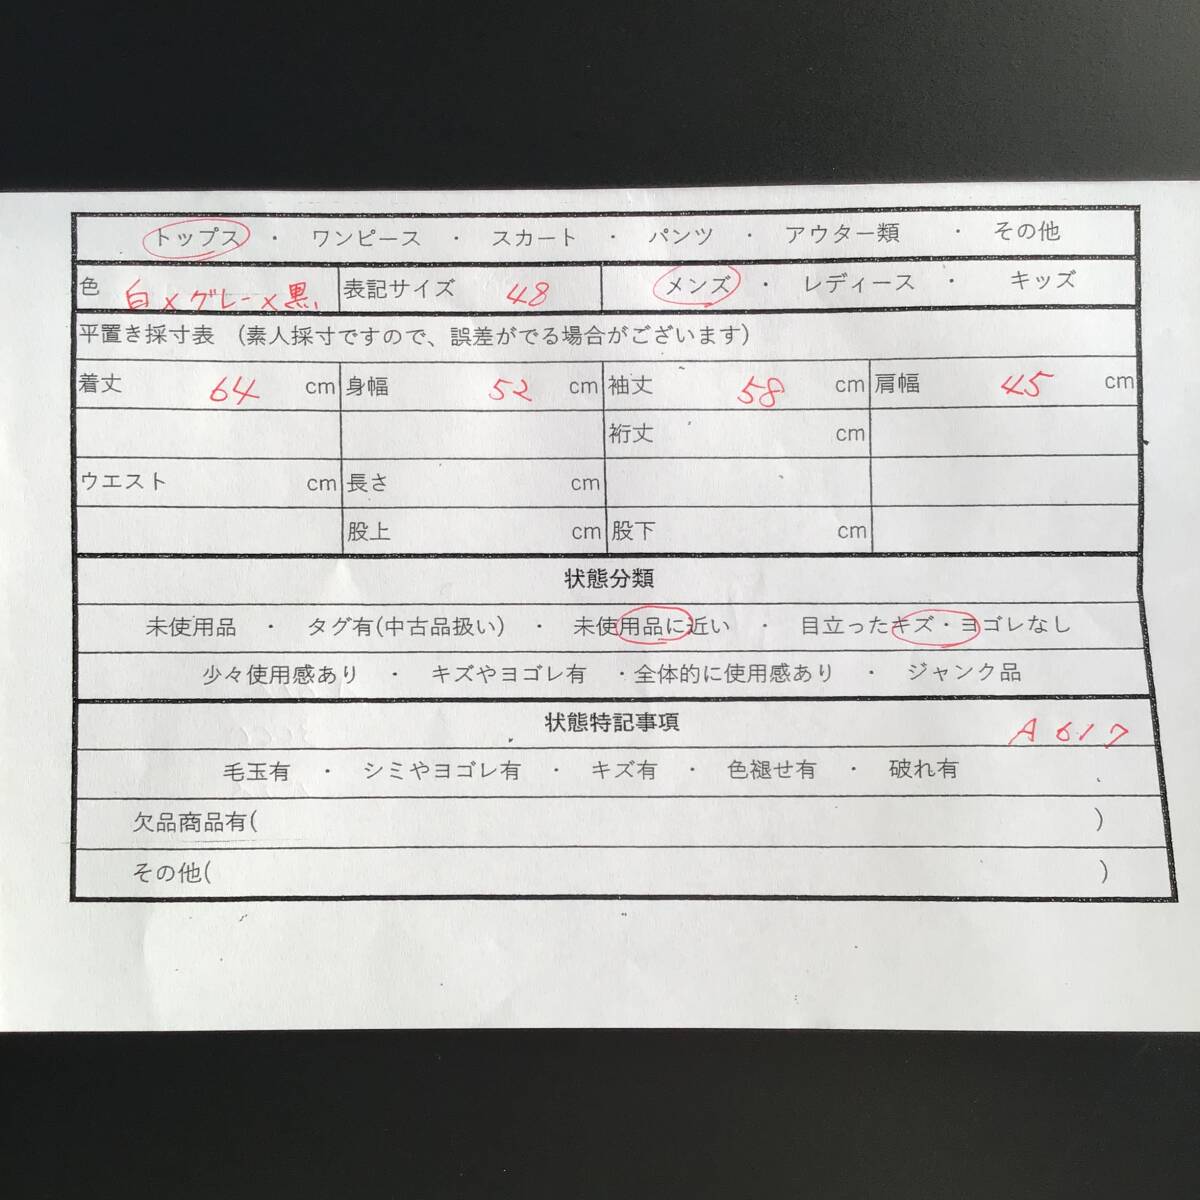 トップス ・ ワンピース ・ スカート ・ パンツ ・ アウター類 ・ その他
色 白×グレー×黒 表記サイズ 48 メンズ ・ レディース ・ キッズ
平置き採寸表 (素人採寸ですので、誤差がでる場合がございます)
着丈 64 cm 身幅 52 cm 袖丈 58 cm 肩幅 45 cm
裄丈 cm
ウエスト cm 長さ cm
股上 cm 股下 cm
状態分類
未使用品 ・ タグ有(中古品扱い) ・ 未使用品に近い ・ 目立ったキズ・ヨゴレなし
少々使用感あり ・ キズやヨゴレ有 ・全体的に使用感あり ・ ジャンク品
状態特記事項 A617
毛玉有 ・ シミやヨゴレ有 ・ キズ有 ・ 色褪せ有 ・ 破れ有
欠品商品有( )
その他( )